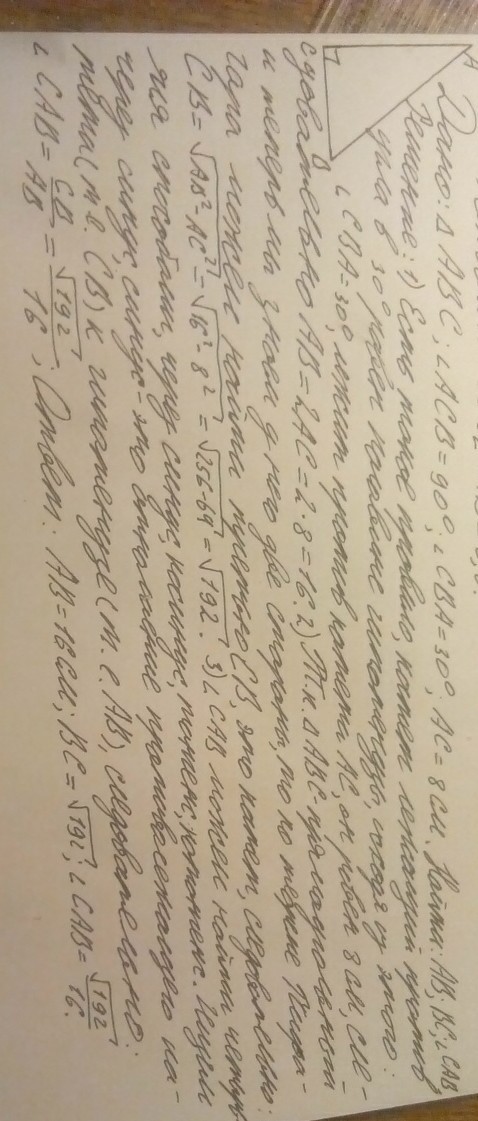 A
B
Дано: △ ABC; ∠ACB=90°; ∠CBA=30°; AC=8см. Найти: AB; BC; ∠CAB
Решение: 1) Есть такое правило, катет лежащий против
угла в 30° равен половине гипотенузы, исходя из этого:
∠CBA=30°, лежит против катета AC, он равен 8см, сле-
довательно AB=2AC=2·8=16. 2) Т.к. △ABC-прямоугольный
и теперь мы знаем у него две стороны, то по теореме Пифа-
гора можем найти третью CB, это катет, следовательно:
CB=√AB²-AC²=√16²-8²=√256-64=√192. 3) ∠CAB можем найти четырь-
мя способами, через синус, косинус, тангенс, котангенс. Ищем
через синус, синус-это отношение противолежащего ка-
тета (т.е. CB) к гипотенузе (т.е. AB), следовательно:
∠CAB=CB/AB=√192/16; Ответ: AB=16см; BC=√192; ∠CAB=√192/16.